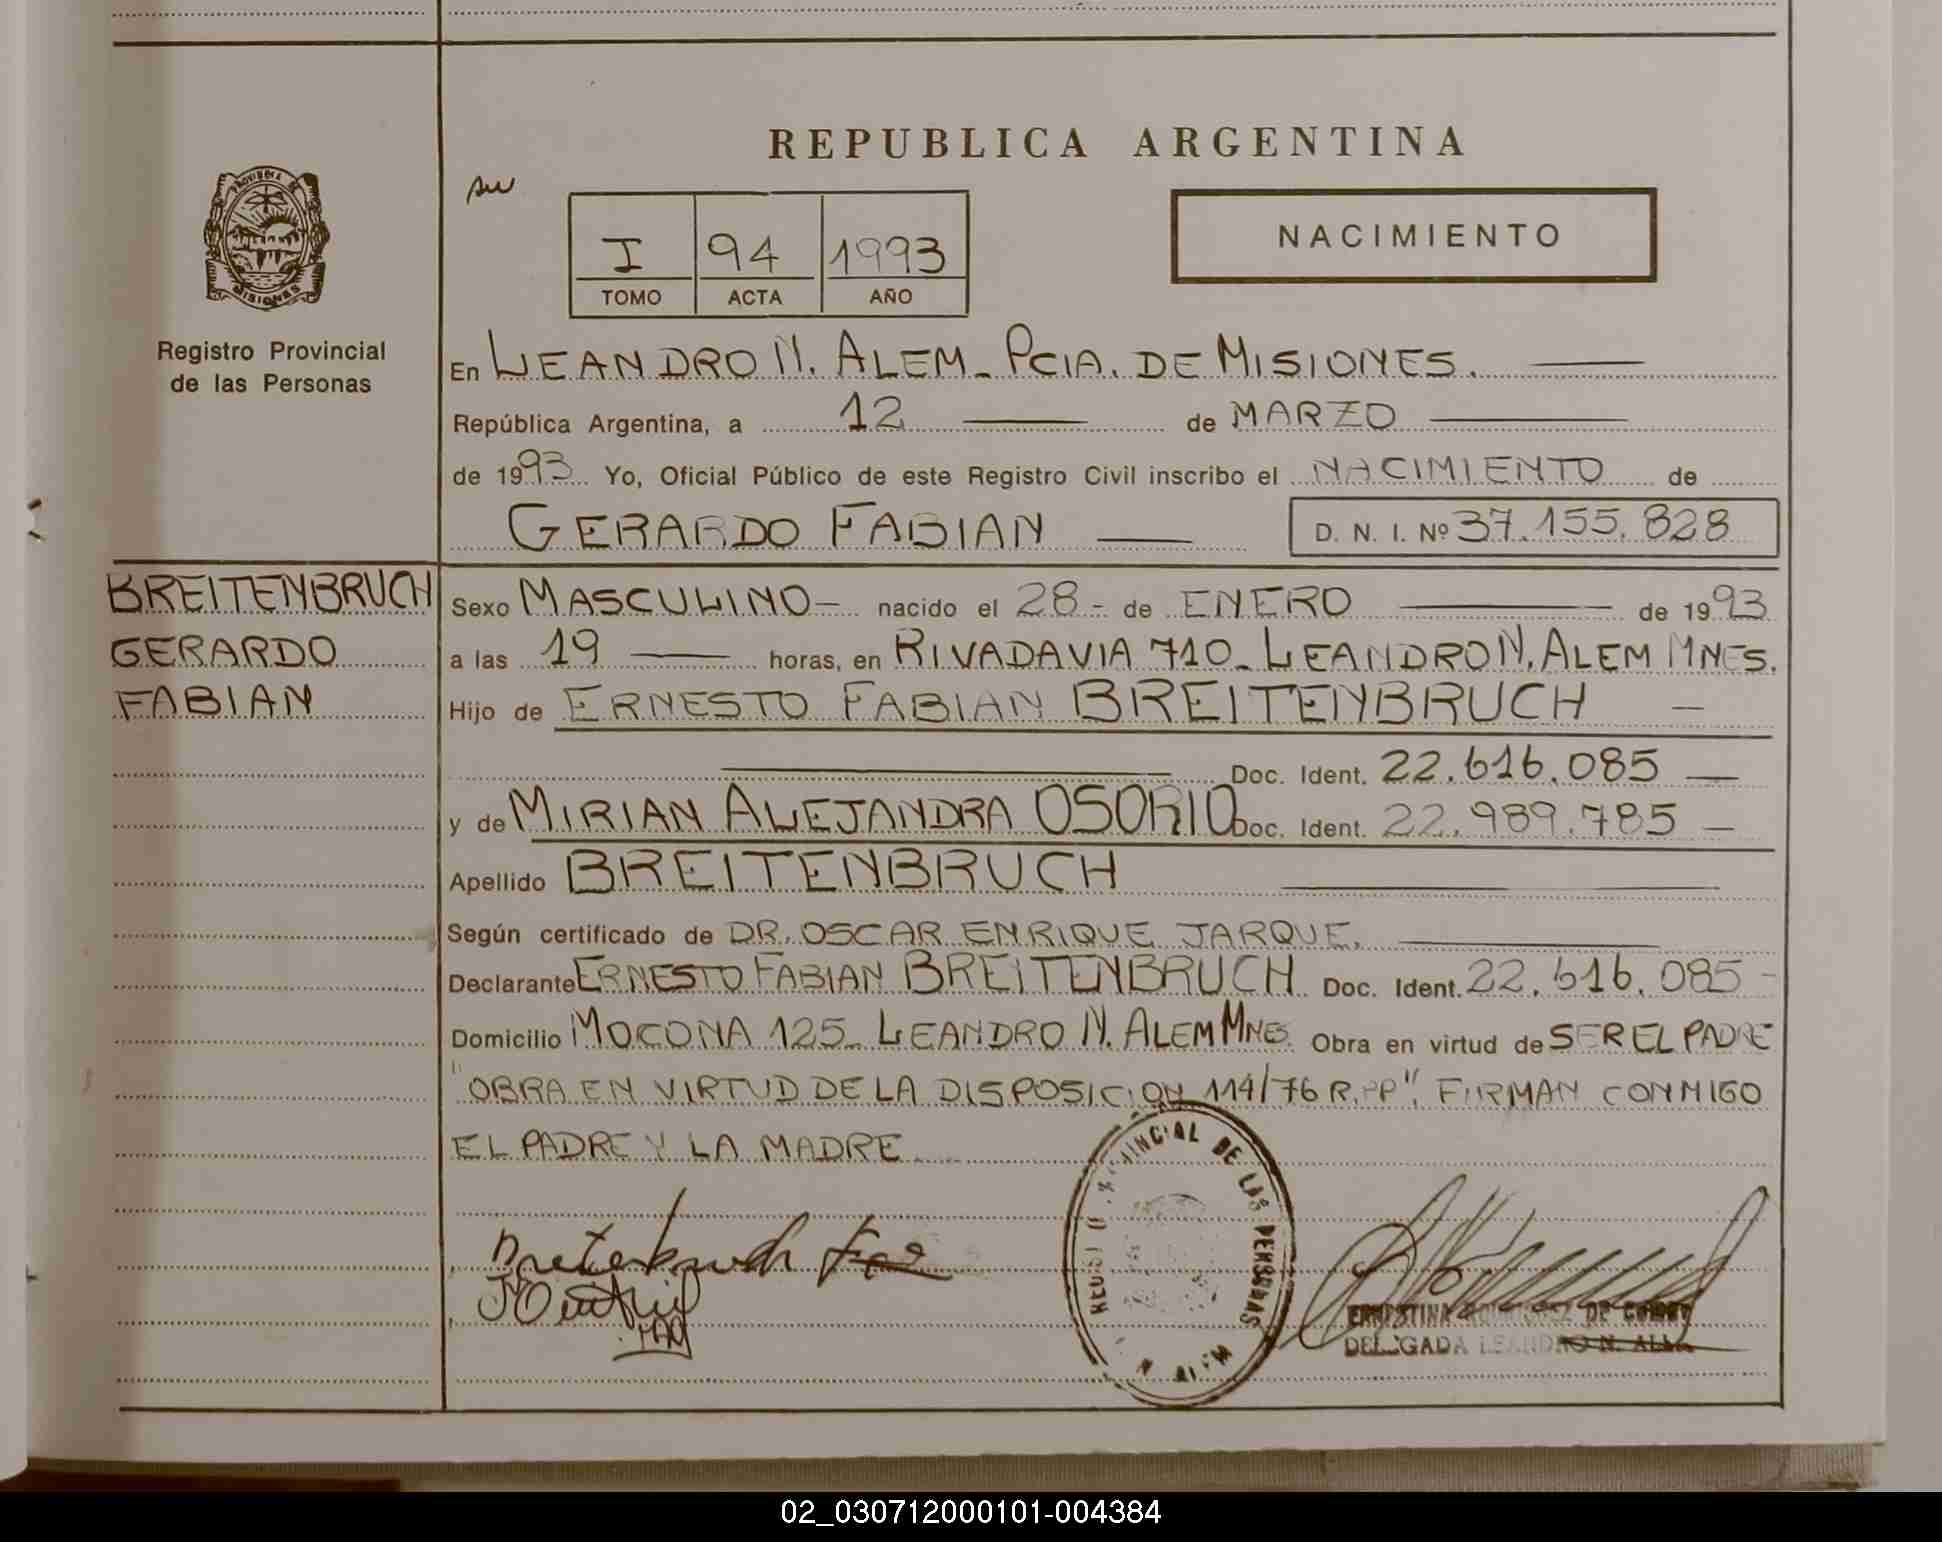 REPUBLICA ARGENTINA
PROVINCIA DE
MISIONES
Registro Provincial
de las Personas
I 94 1993
TOMO ACTA AÑO
NACIMIENTO
En LEANDRO N. ALEM - PCIA. DE MISIONES.
República Argentina, a 12 de MARZO
de 1993 Yo, Oficial Público de este Registro Civil inscribo el NACIMIENTO de
GERARDO FABIAN D. N. I. Nº 37.155.828
BREITENBRUCH
GERARDO
FABIAN
Sexo MASCULINO - nacido el 28 - de ENERO de 1993
a las 19 horas, en RIVADAVIA 710 - LEANDRO N. ALEM MNES.
Hijo de ERNESTO FABIAN BREITENBRUCH -
Doc. Ident. 22.616.085
y de MIRIAN ALEJANDRA OSORIO Doc. Ident. 22.989.785 -
Apellido BREITENBRUCH
Según certificado de DR. OSCAR ENRIQUE JARQUE.
Declarante ERNESTO FABIAN BREITENBRUCH Doc. Ident. 22.616.085 -
Domicilio MOCONA 125 - LEANDRO N. ALEM MNES. Obra en virtud de SER EL PADRE
"OBRA EN VIRTUD DE LA DISPOSICION 114/76 R.PP". FIRMAN CONMIGO
EL PADRE Y LA MADRE
PROVINCIAL DE LAS PERSONAS
ERNESTINA RODRIGUEZ DE
DELEGADA LEANDRO N. ALEM
02_030712000101-004384